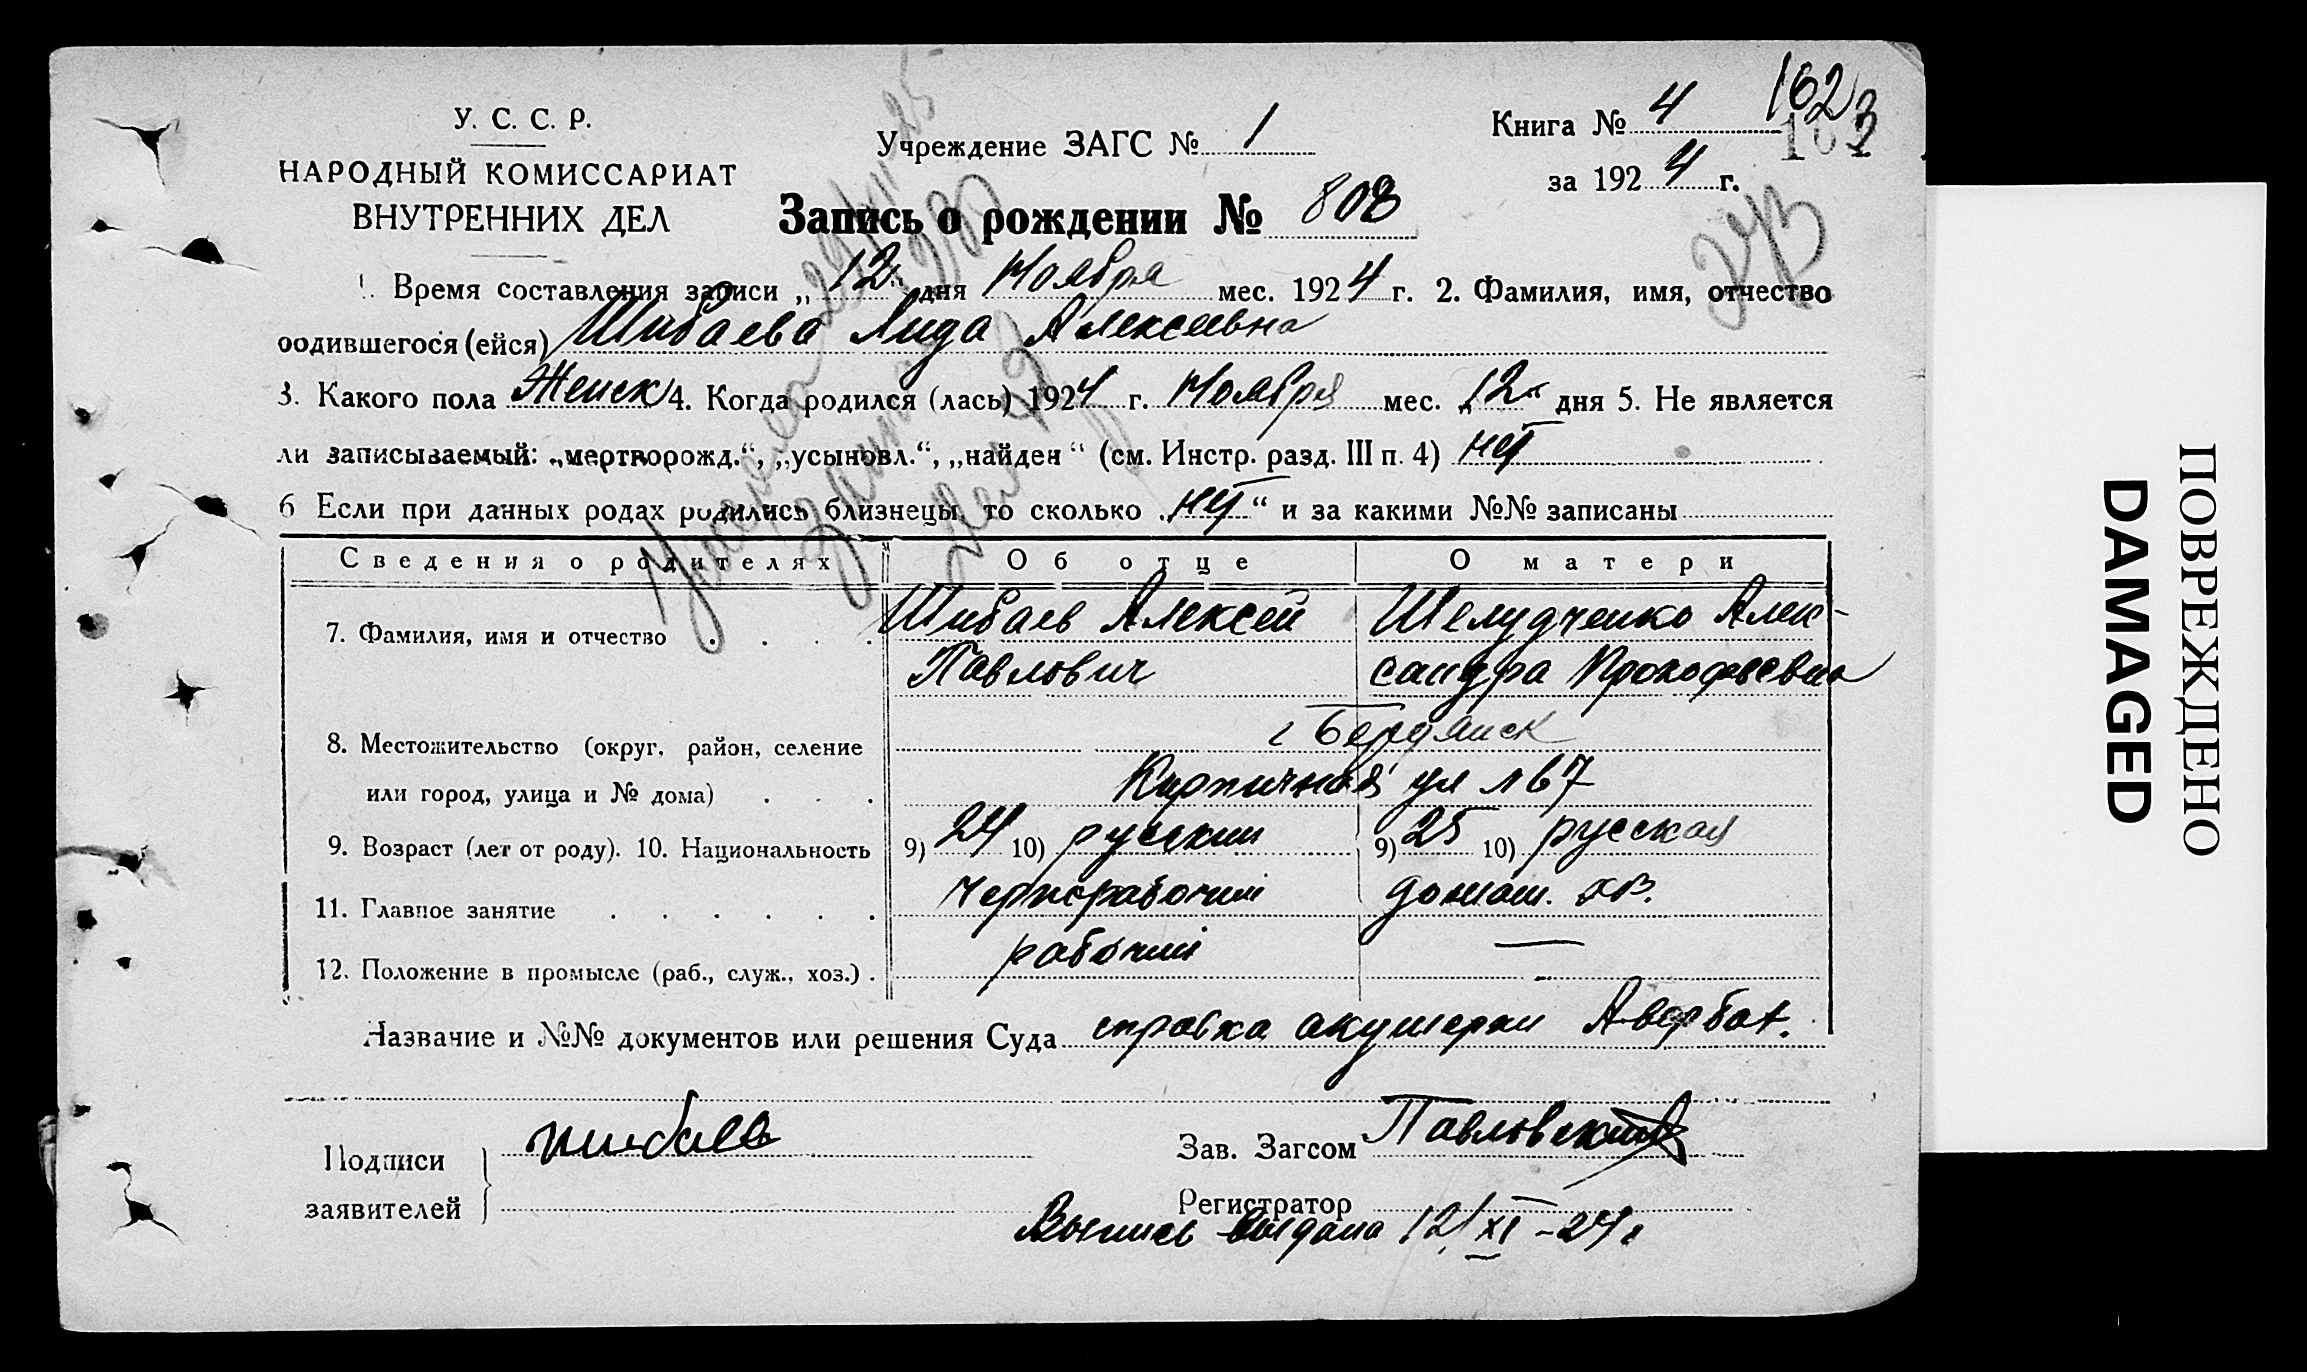 У. С. С. Р.
НАРОДНЫЙ КОМИССАРИАТ
ВНУТРЕННИХ ДЕЛ
Учреждение ЗАГС № 1
Книга № 4
162
за 1924 г.
Запись о рождении № 808
1. Время составления записи „12“ дня Ноября мес. 1924 г. 2. Фамилия, имя, отчество
родившегося (ейся) Шибаева Лида Алексеевна
3. Какого пола Женск 4. Когда родился (лась) 1924 г. Ноября мес. „12“ дня 5. Не является
ли записываемый: „мертворожд.“, „усыновл.“, „найден“ (см. Инстр. разд. III п. 4) нет
6 Если при данных родах родились близнецы, то сколько „нет“ и за какими №№ записаны
Сведения о родителях Об отце О матери
7. Фамилия, имя и отчество . . . . Шибаев Алексей Шелудченко Алек-
Павлович сандра Прокофьевна
8. Местожительство (округ, район, селение г Бердянск
или город, улица и № дома) . . . Кирпичная ул № 67
9. Возраст (лет от роду). 10. Национальность 9) 24 10) русский 9) 25 10) русская
11. Главное занятие . . . . . . чернорабочий домаш. хоз.
12. Положение в промысле (раб., служ., хоз.) . рабочий —
Название и №№ документов или решения Суда справка акушерки Авербах.
Подписи
заявителей
Шибаев
Зав. Загсом Павловский
Регистратор
Выпись выдана 12/XI-24г
Умерла
ПОВРЕЖДЕНО
DAMAGED